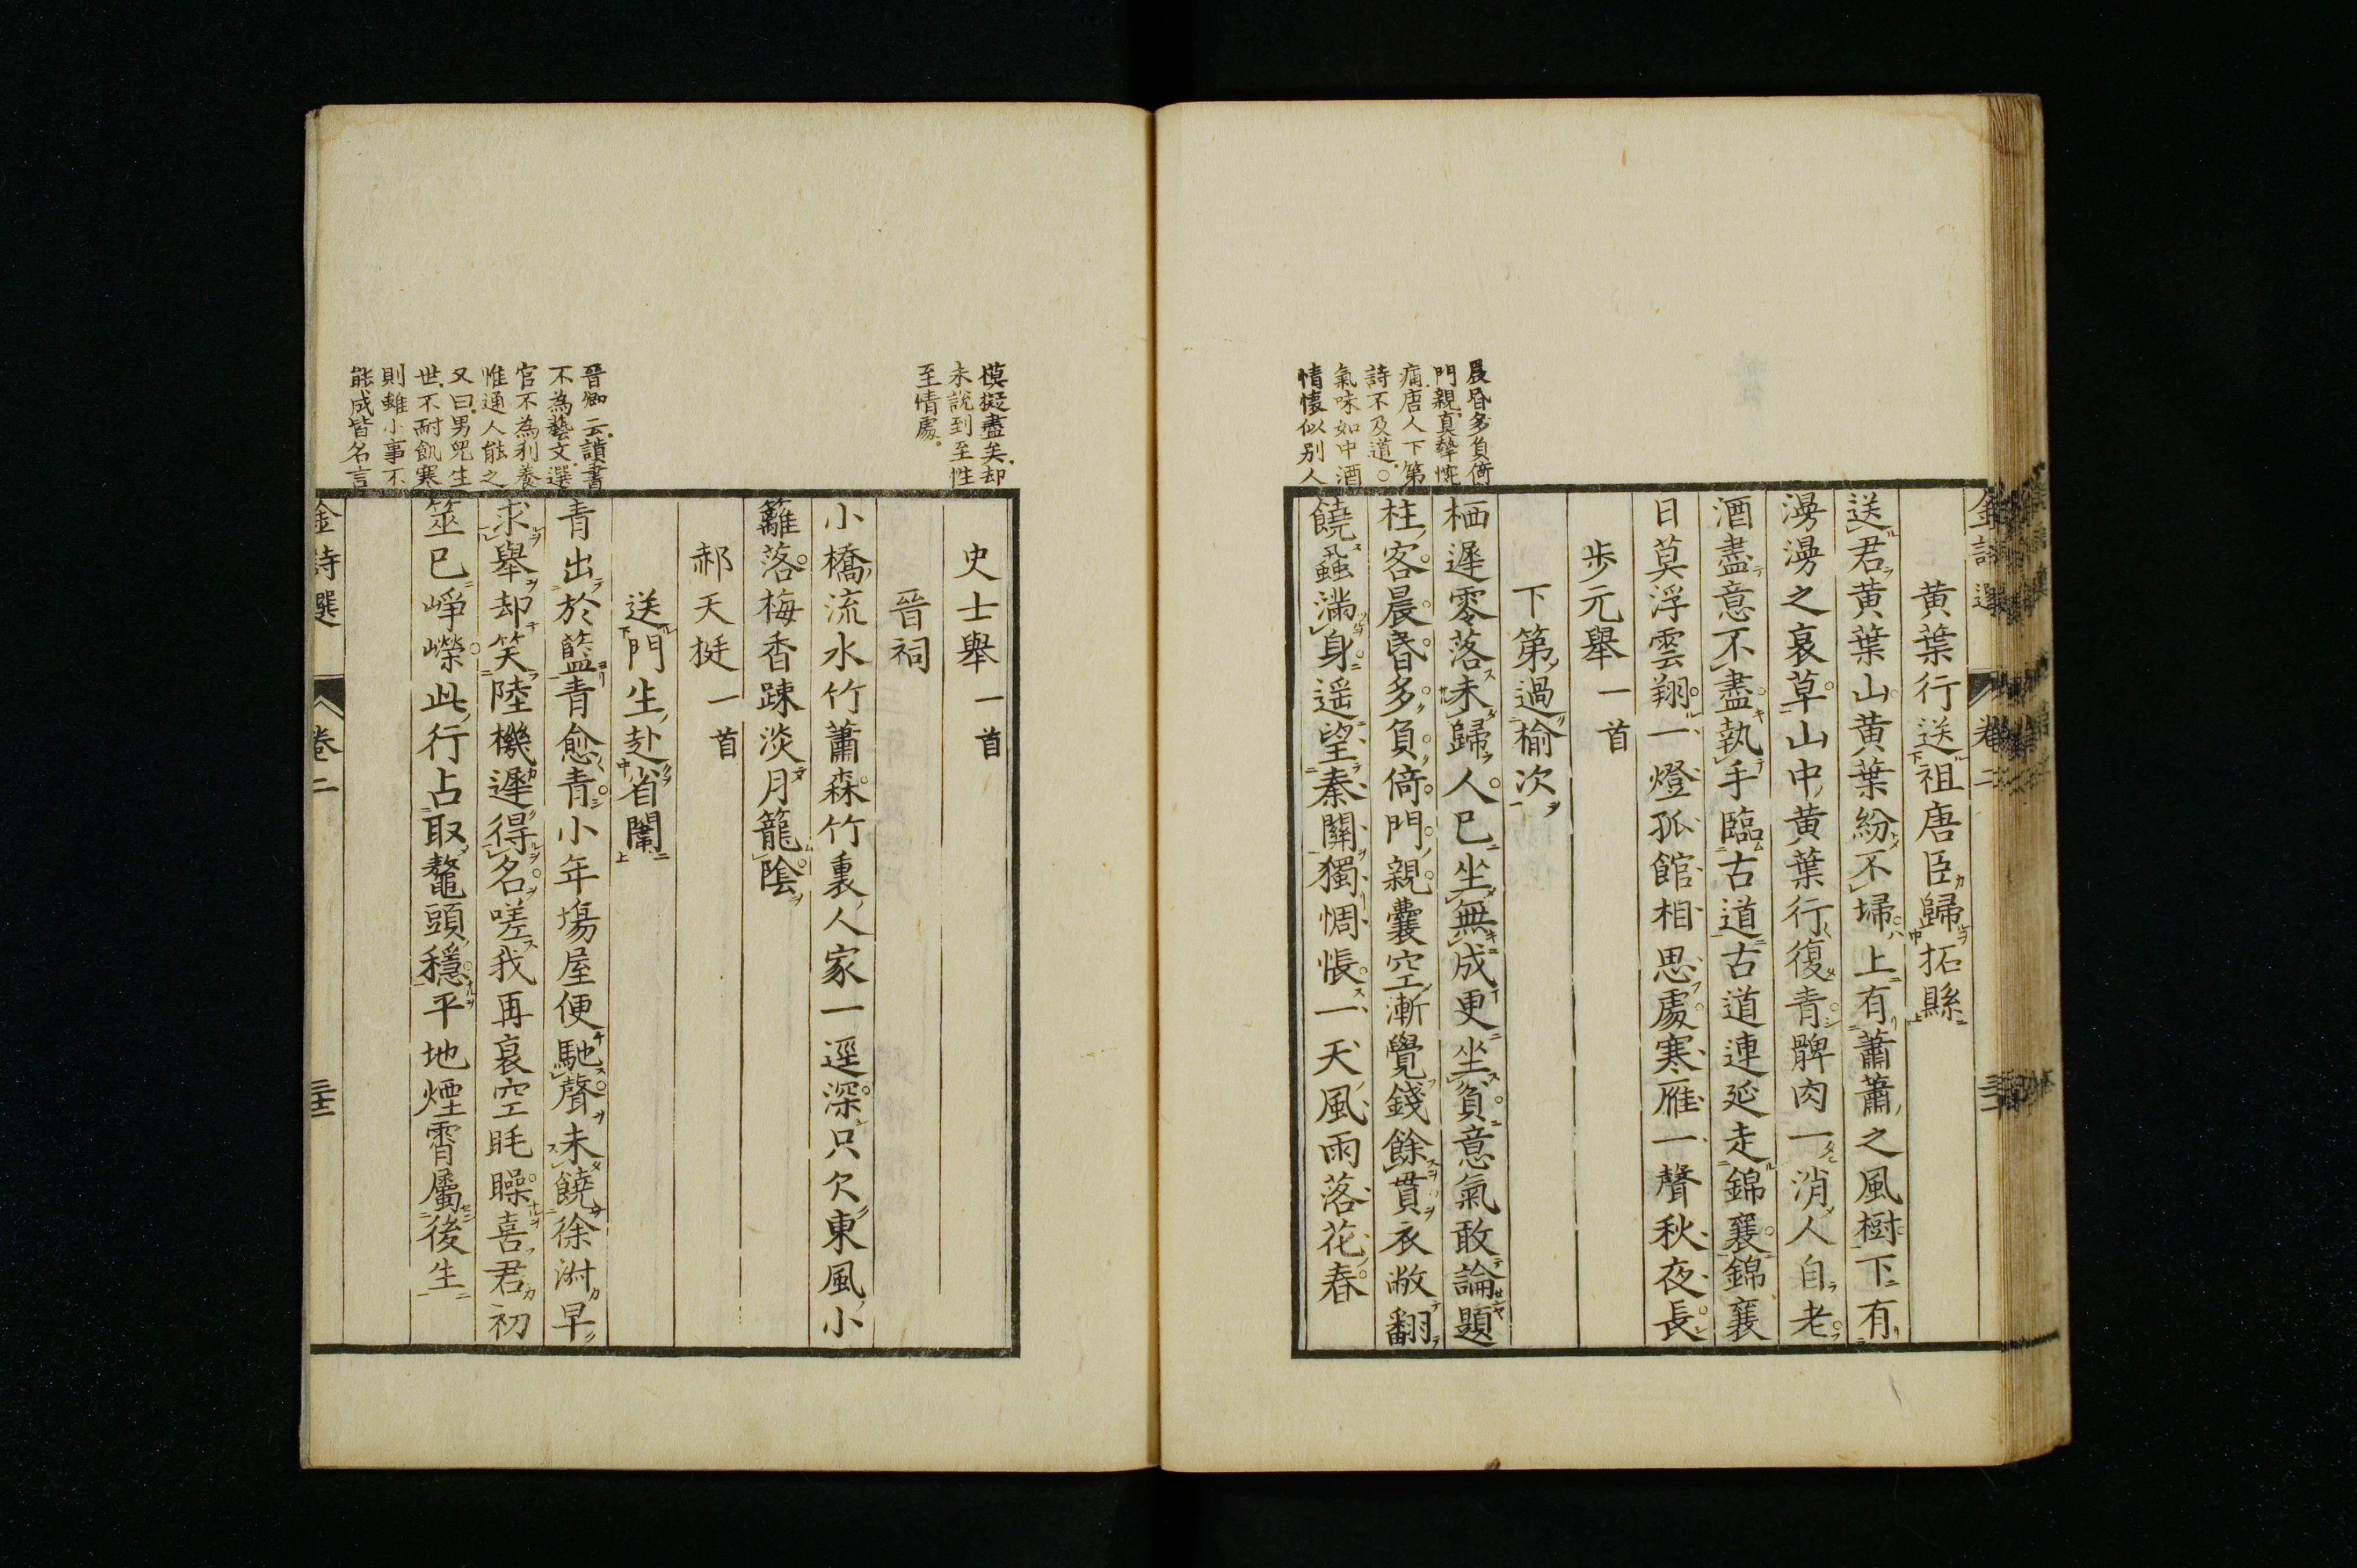 黄葉行送祖唐臣歸拓縣
送君黄葉山黄葉紛不埽上有蕭蕭之風樹下有
漫漫之衰草山中黄葉行復青髀肉一消人自老
酒盡意不盡執手臨古道古道連延走錦襄錦襄
日莫浮雲翔一燈孤館相思處寒雁一聲秋夜長
步元舉一首
下第過榆次
栖遲零落未歸人已坐無成更坐貧意氣敢論題
柱客晨昏多負倚門親囊空漸覺錢餘貫衣敝翻
饒蝨滿身遥望秦關獨惆悵一天風雨落花春
晨昏多負倚
門親真摯悽
痛唐人下第
詩不及道○
氣味如中酒
情懷似别人
史士舉一首
晉祠
小橋流水竹蕭森竹裏人家一逕深只欠東風小
籬落梅香踈淡月籠陰
郝天挺一首
送門生赴省闈
青出於藍青愈青小年場屋便馳聲未饒徐淑早
求舉却笑陸機遲得名嗟我再衰空眊矂喜君初
筮已崢嶸此行占取鼇頭穩平地煙霄屬後生
模擬盡美却
未說到至性
至情處
晉卿云讀書
不為藝文選
官不為利養
惟通人能之
又曰男兒生
世不耐飢寒
則雖小事不
能成皆名言
金詩選
卷二